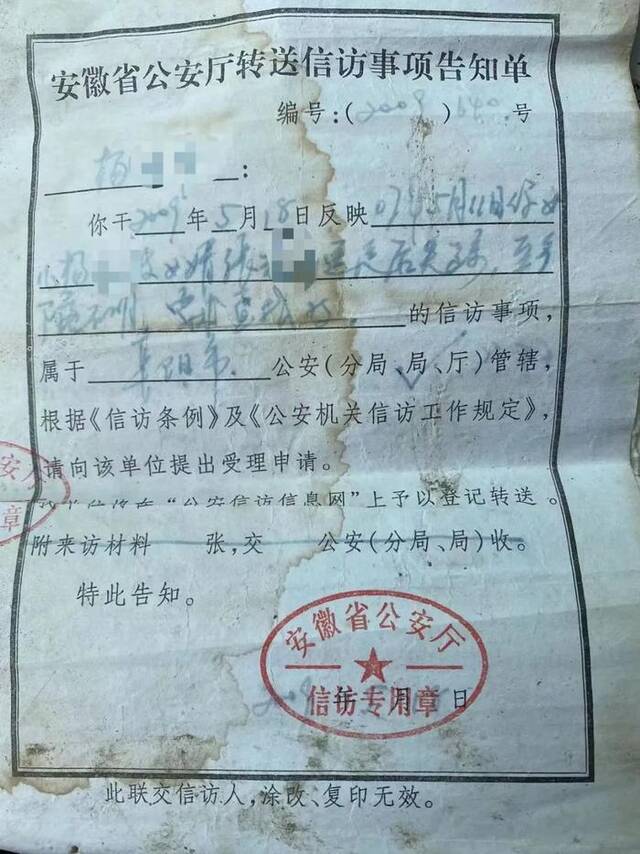 安徽省公安厅转送信访事项告知单
编号：（2009）640号
杨：
你于2009年5月18日反映07年5月11日你女
儿杨 女婿张 后 ，至今
不明，
的信访事项，
属于阜阳市公安（分局、局、厅）管辖，
根据《信访条例》及《公安机关信访工作规定》，
请向该单位提出受理申请。
在“公安信访信息网”上予以登记转送。
附来访材料 张，交 公安（分局、局）收。
特此告知。
安徽省公安厅
信访专用章
2009年5月18日
此联交信访人，涂改、复印无效。
安厅
章